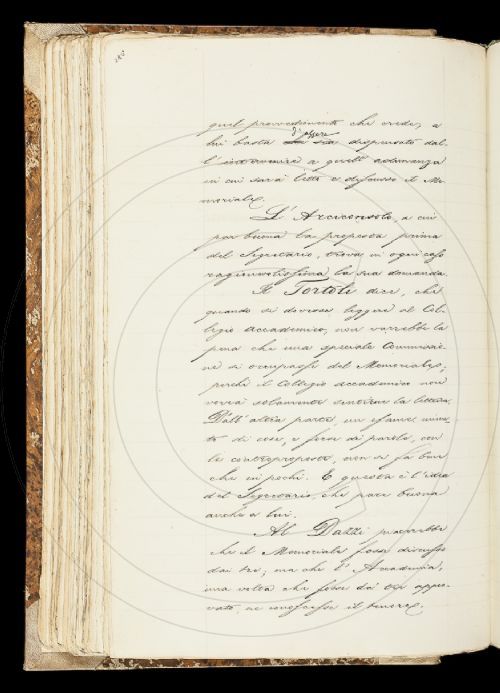 quel provvedimento che crede, a
lui basta d'essere dispensato dal-
l'intervenire a quell'adunanza
in cui sarà letto e discusso il Me-
moriale.
L'Arciconsolo, a cui
par buona la proposta prima
del Segretario, trova in ogni caso
ragionevolissima la sua domanda.
Il Tortoli dice, che
quando si dovesse leggere al Col-
legio accademico, non varrebbe la
pena che una speciale Commissio-
ne si occupasse del Memoriale;
perchè il Collegio accademico non
vorrà solamente sentirne la lettura.
Dall'altra parte, un esame minu-
to di cose, e forse di parole, con
le controproposte, non si fa bene
che in pochi. E questa è l'idea
del Segretario, che pare buona
anche a lui.
Al Dazzi piacerebbe
che il Memoriale fosse discusso
dai tre; ma che l'Accademia,
una volta che fosse dai tre appro-
vato, ne conoscesse il tenore.